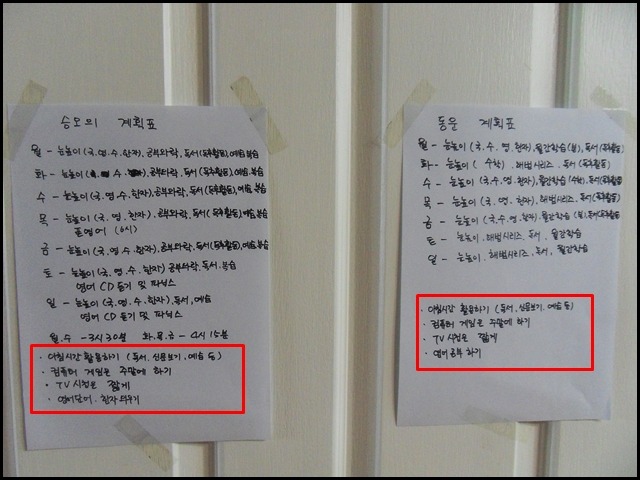 승모의 계획표
월 - 눈높이(국.영.수.한자), 공부와락, 독서(독후활동), 예습복습
화 - 눈높이(국.영.수.한자), 공부와락, 독서(독후활동), 예습복습
수 - 눈높이(국.영.수.한자), 공부와락, 독서(독후활동), 예습복습
목 - 눈높이(국.영.수.한자), 공부와락, 독서(독후활동), 예습복습
(6시)
금 - 눈높이(국.영.수.한자), 공부와락, 독서(독후활동), 예습복습
토 - 눈높이(국.영.수.한자) 공부와락, 독서, 복습
영어 CD 듣기 및 파닉스
일 - 눈높이(국.영.수.한자), 독서, 예습
영어 CD 듣기 및 파닉스
월.수 - 3시 30분 화.목.금 - 4시 15분
· 아침시간 활용하기 (독서, 신문보기, 예습 등)
· 컴퓨터 게임은 주말에 하기
· TV 시청은 짧게
· 영어단어. 한자 외우기
동운 계획표
월 - 눈높이(국.수.영.한자), 월간학습(사), 독서(독후활동)
화 - 눈높이(수학), 해법시리즈, 독서(독후활동)
수 - 눈높이(국.수.영.한자), 월간학습(수), 독서(독후활동)
목 - 눈높이(국.수.영.한자), 해법시리즈, 독서(독후활동)
금 - 눈높이(국.수.영.한자), 월간학습, 독서(독후활동)
토 - 눈높이. 해법시리즈. 독서, 월간학습
일 - 눈높이. 해법시리즈. 독서, 월간학습
· 아침시간 활용하기 (독서, 신문보기, 예습 등)
· 컴퓨터 게임은 주말에 하기
· TV 시청은 짧게
· 영어 공부 하기